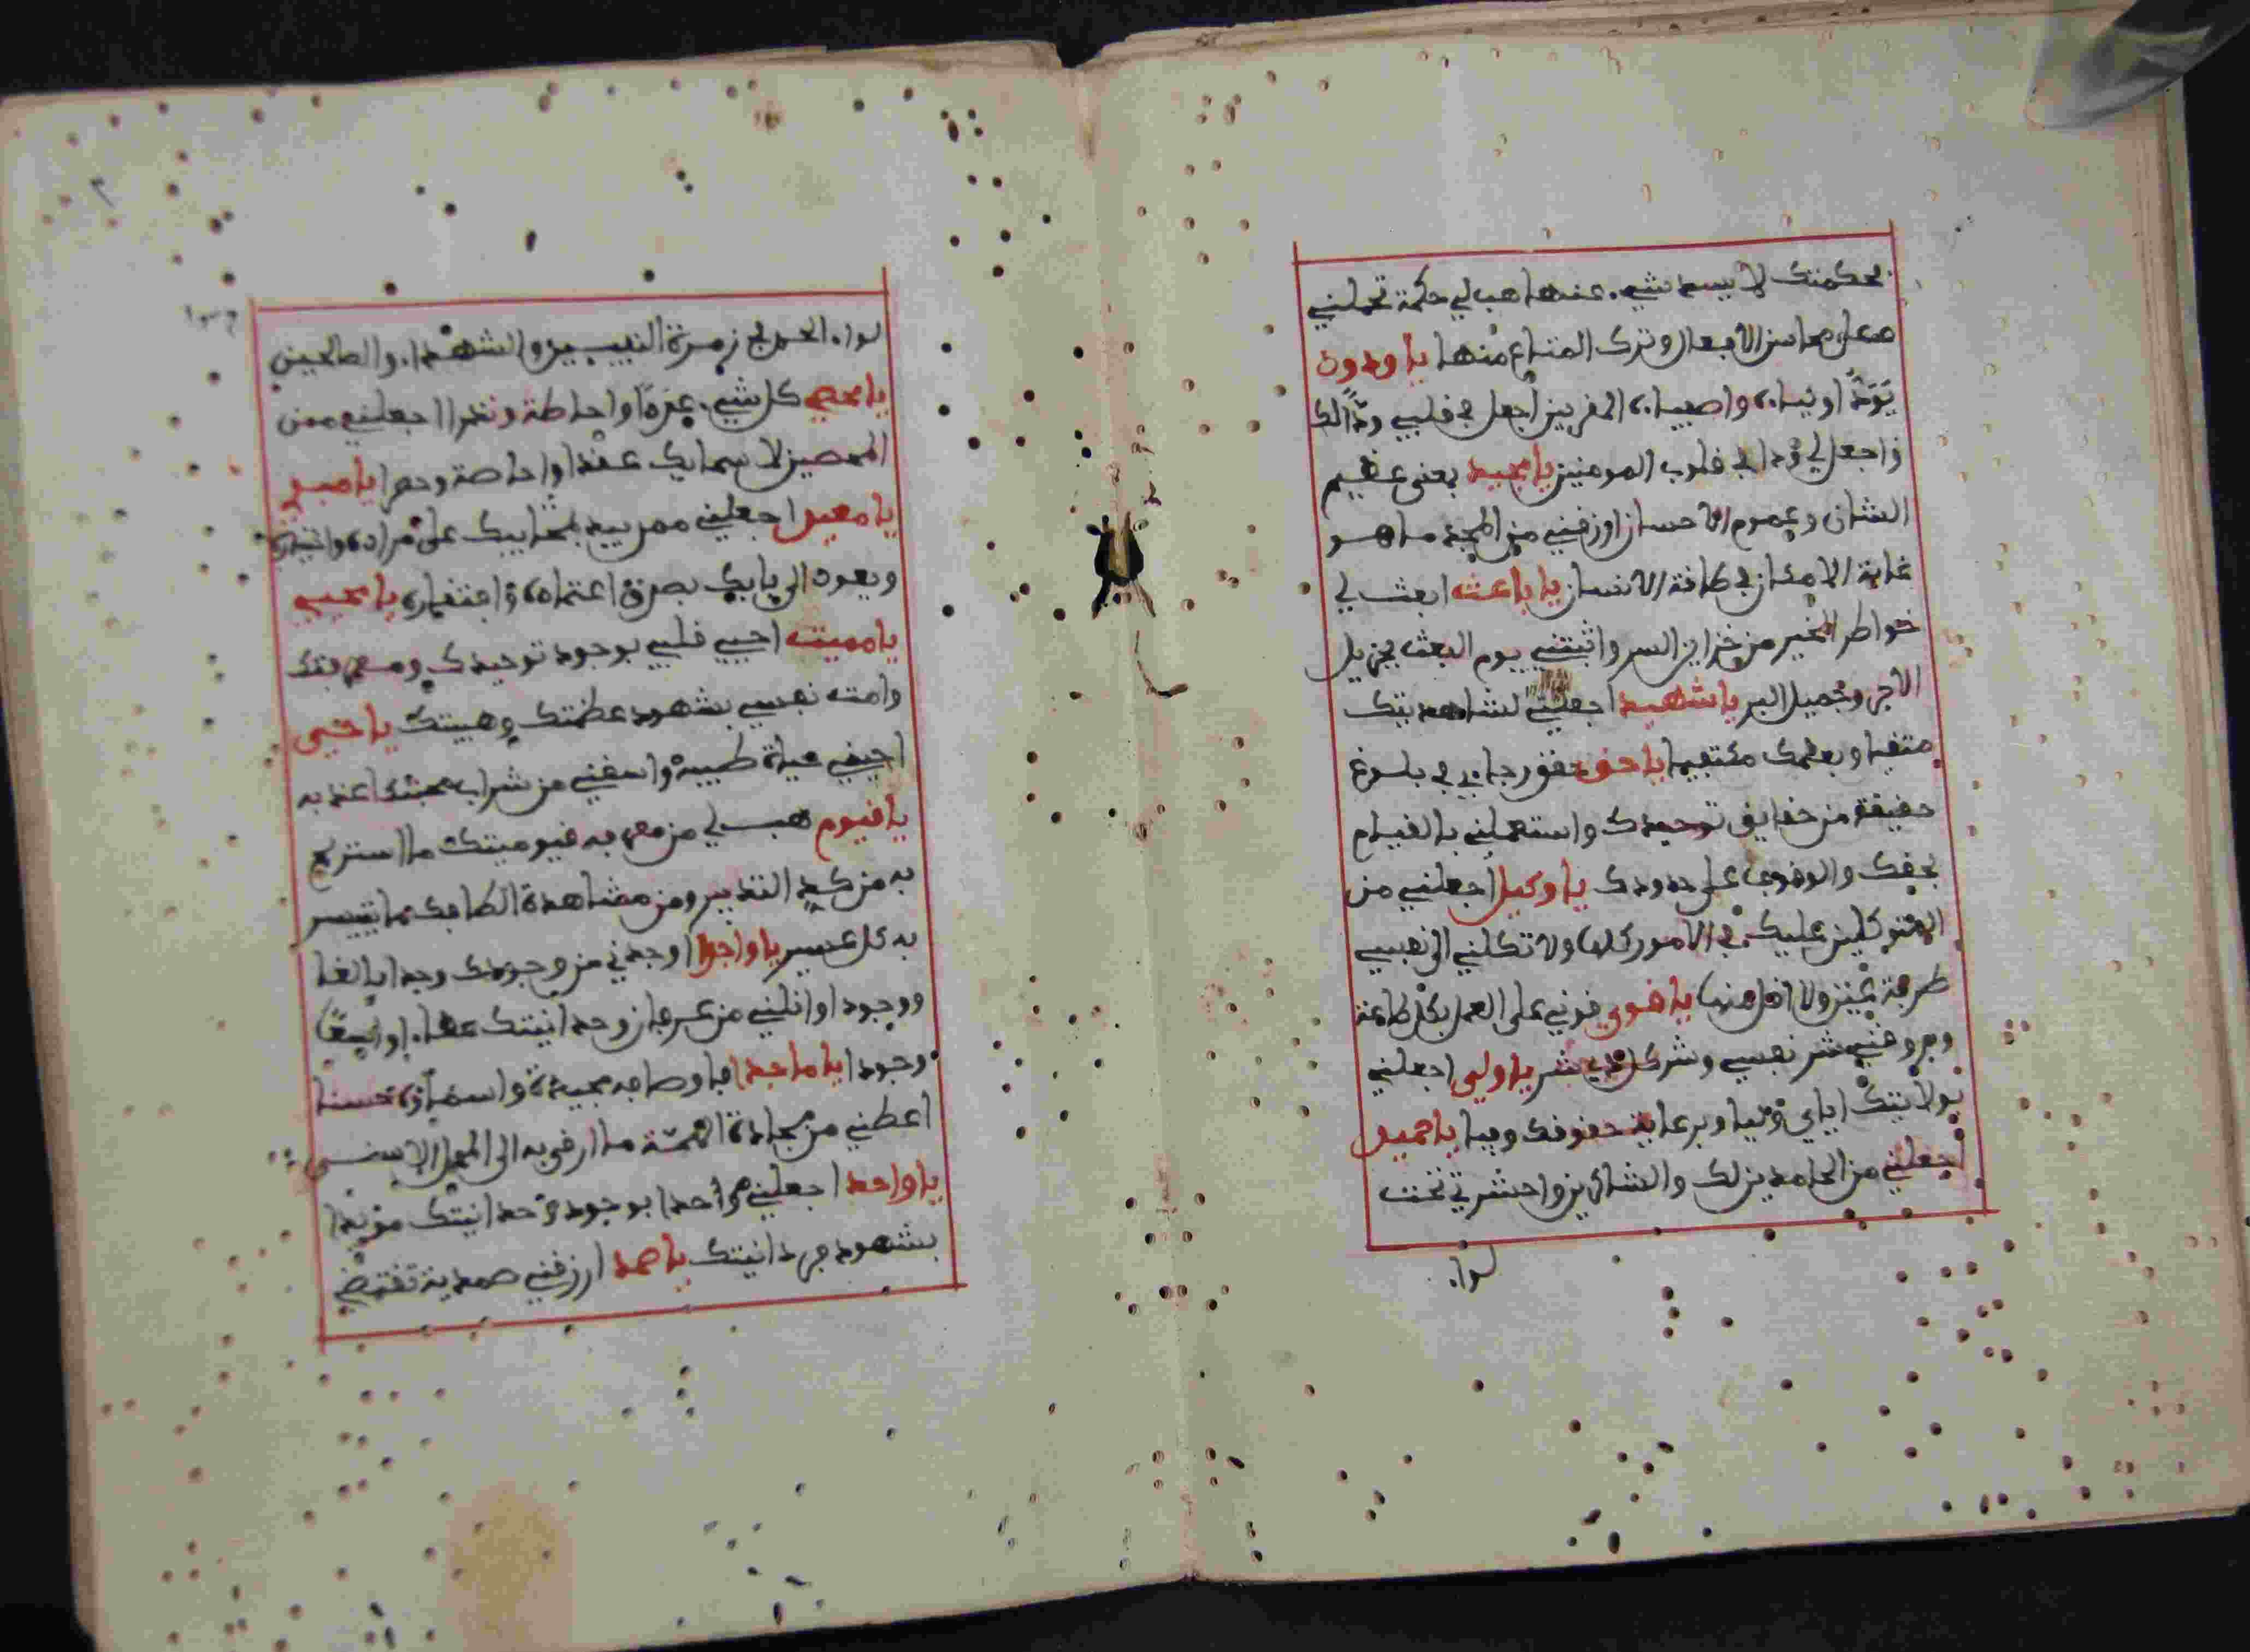 بحكمتك لا يسعه شيء عندها هب لي حكمة تحملني
على محاسن الأفعال وترك المتاع منها يا ودود
تودد اولياءه واصفياءه المقربين اجعل في قلبي ودا لك
واجعل لي ودا في قلوب المومنين يا مجيد بمعنى عظيم
الشان وعموم الاحسان ارزقني من المجد ما هو
غاية الامكان في طاقة الانسان يا باعث ابعث لي
خواطر الخير من خزاين السر واثبتني يوم البعث بجزيل
الأجر وجميل البر يا شهيد اجعلني لشاهديتك
متقيا وبعلمك مكتفيا يا حق حقق رجاءي في بلوغ
حقيقة من حقايق توحيدك واستعملني بالقيام
بحقك والوقوف على حدودك يا وكيل اجعلني من
المتوكلين عليك في الامور كلها ولا تكلني الى نفسي
طرفة عين ولا اقل منها يا قوي قوني على العمل بكل طاعة
وقني شر نفسي وشر كل ذي شر يا ولي اجعلني
بولايتك اياي وليا وبرعاية حقوقك وفيا يا حميد
اجعلني من الحامدين لك والشاكرين واحشرني تحت
لواء
لواء الحمد في زمرة النبيين والشهداء والصالحين
يا محصي كل شيء عدا واحاطة وقدرا اجعلني من
المحصين لاسمايك عقدا واحاطة وحصرا يا مبدي
يا معيد اجعلني ممن يبدا بمحابك على مراده واختياره
ويعود الى بابك بصدق اعتماده وافتقاره يا محيي
يا مميت احيي قلبي بوجود توحيدك ومعرفتك
وامت نفسي بشهود عظمتك وهيبتك يا حي
احيني حياة طيبة واسقني من شراب محبتك اعذبه
يا قيوم هب لي من معرفة قيوميتك ما استريح
به من كد التدبير ومن مشاهدة الطافك ما يتيسر
به كل عسير يا واجد اوجدني من وجودك وجدا بالغا
ووجودا وانلني من عرفان وحدانيتك
وجودا يا ماجدا في اوصافه مجيدة واسماؤه حسنا
اعطني من مجادة الهمة ما ارقى به الى المحل الاسنى
يا واحد اجعلني موحدا بوجود وحدانيتك مؤيدا
بشهود فردانيتك يا صمد ارزقني صمدية تقتضي